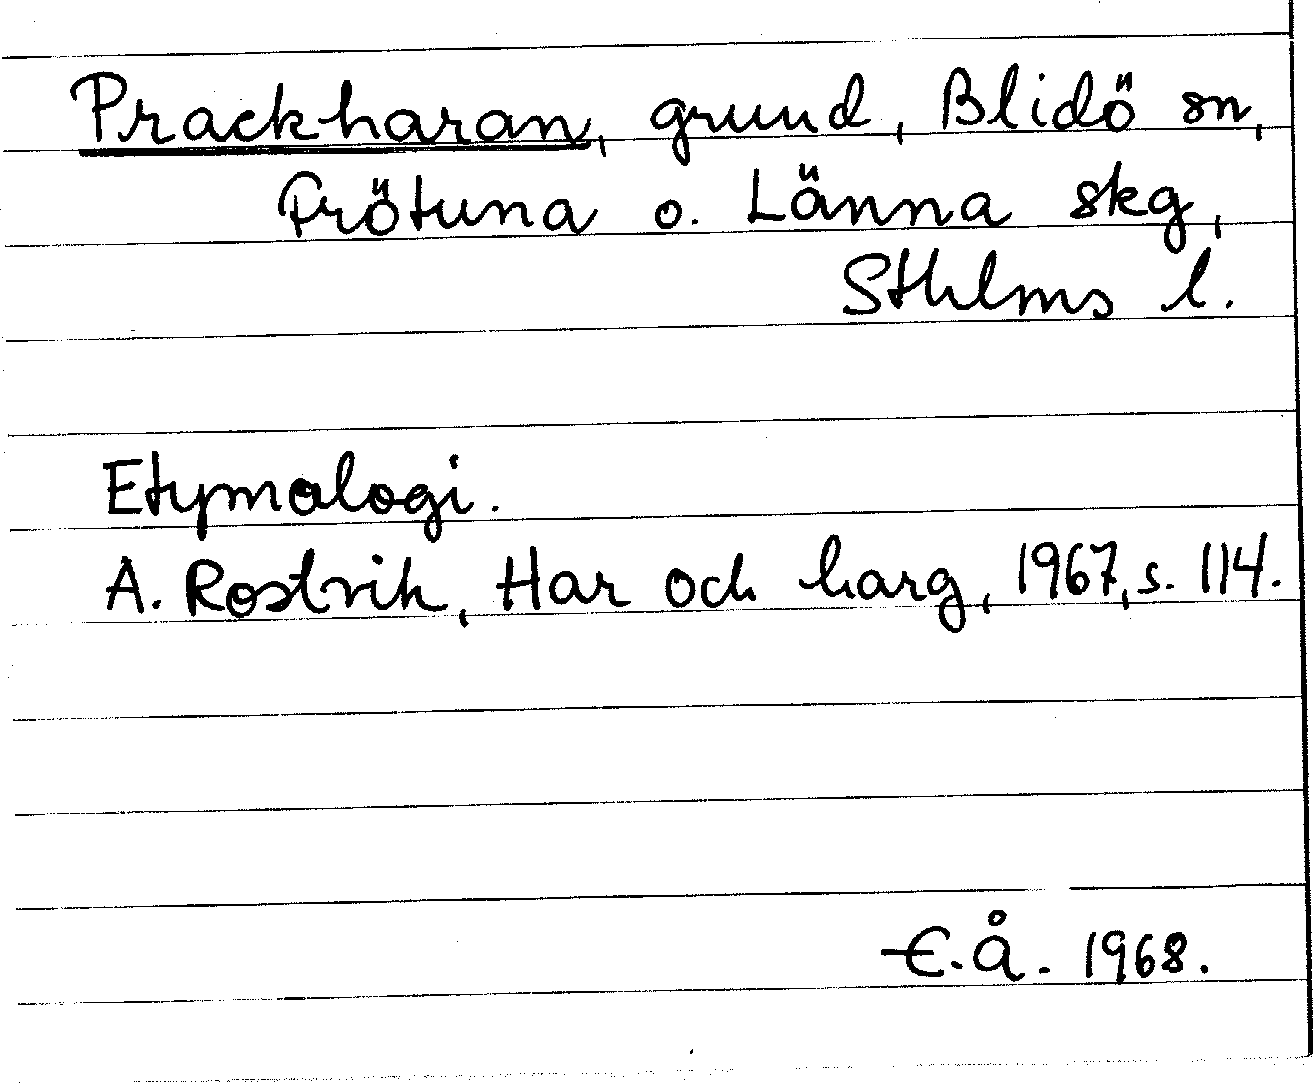 Prackharan, grund, Blidö sn,
Frötuna o. Länna skg,
Sthlms l.
Etymologi.
A. Rostvik, Har och harg, 1967, s. 114.
E.Å. 1968.